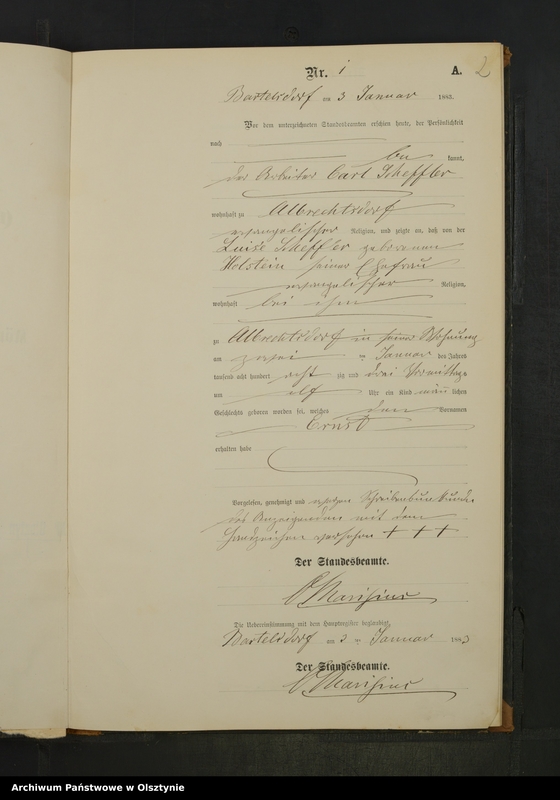 Nr. 1 A. 2
Bartelsdorf am 3 Januar 1883.
Vor dem unterzeichneten Standesbeamten erschien heute, der Persönlichkeit
nach
be kannt,
der Arbeiter Carl Scheffler
wohnhaft zu Albrechtsdorf
evangelischer Religion, und zeigte an, daß von der
Luise Scheffler geborenen
Holstein seiner Ehefrau
evangelischer Religion,
wohnhaft bei ihm
zu Albrechtsdorf in seiner Wohnung
am zwei ten Januar des Jahres
tausend acht hundert acht zig und drei Vormittags
um elf Uhr ein Kind männ lichen
Geschlechts geboren worden sei, welches den Vornamen
Ernst
erhalten habe
Vorgelesen, genehmigt und wegen Schreibensunkunde
des Anzeigenden mit dem
Handzeichen versehen + + +
Der Standesbeamte.
Die Uebereinstimmung mit dem Hauptregister beglaubigt
Bartelsdorf am 3 ten Januar 1883
Der Standesbeamte.
Archiwum Państwowe w Olsztynie